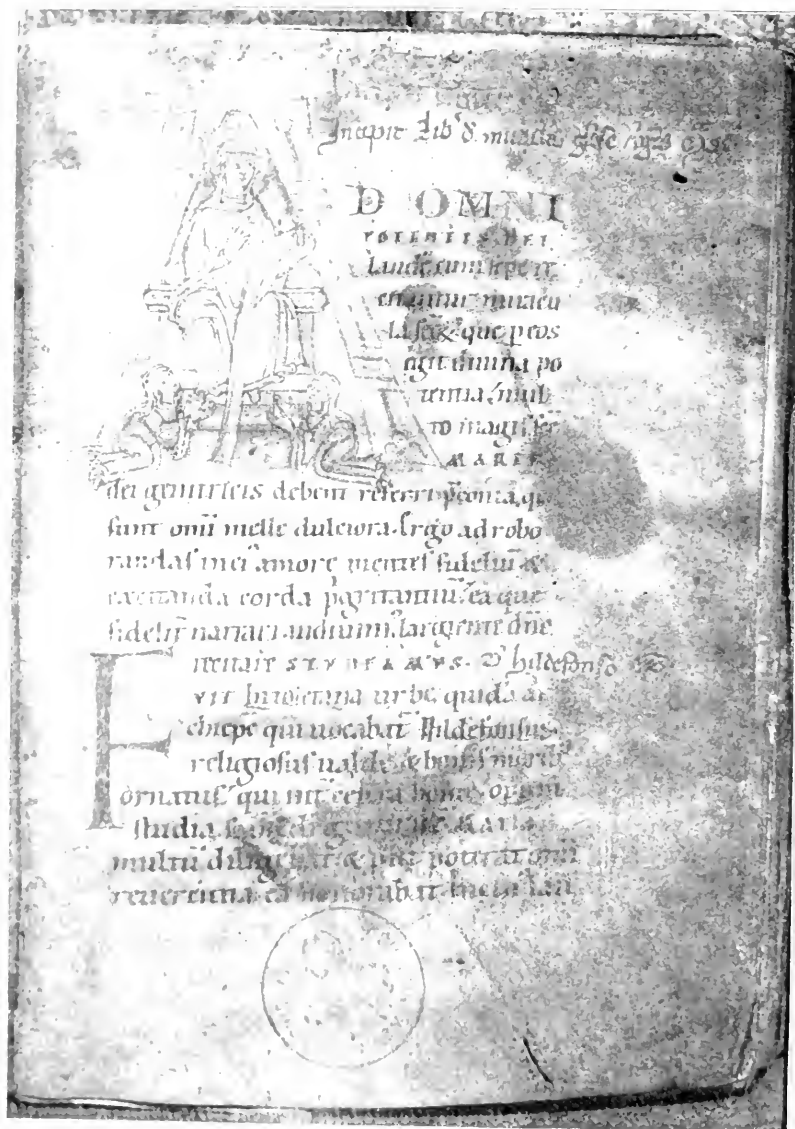 Incipit Lib
D OMNI
POTENTIS DEI
laudē cum sepe re
citantur miracu
la scōꝝ que ꝑ eos
egit diuina po
tentia, mul
to magis
MARIE
dei genitricis debent referri ꝑconia, q̄
sunt omī melle dulciora. Ergo ad robo
randas in ei amore mentes fideliū &
excitanda corda pigritantiū ea que
fideliū narrari audiuim᷒ largiente dn̄o
recitare STVDEAMVS. D̵ hildefonso
F VIT in toletana urbe quidā ar
chiepc̄ qui uocabat᷑ hildefonsus
religiosus ualde & bonis morib᷒
ornatus qui int̄ cetera boni opis
studia MARIAM
multū diligebat & ꝓut poterat omī
reuerentia eā honorabat